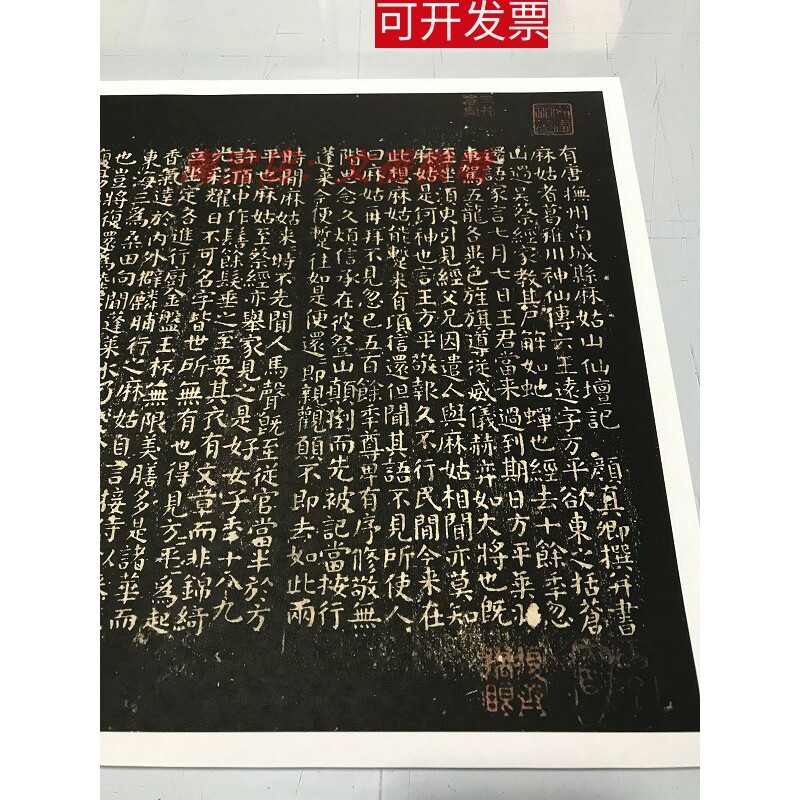 可开发票
有唐撫州南城縣麻姑山仙壇記 顏真卿撰并書
麻姑者葛稚川神仙傳云王遠字方平欲東之括蒼
山過蔡經家教其尸解如虵蟬也經去十餘年忽
還語家言七月七日王君當来過到期日方平乗
車駕五龍各異色旌旗導従威儀赫弈如大將也既
至坐須臾引見經父兄因遣人與麻姑相聞亦莫知
麻姑是何神也言王方平敬報久不行民間今来在
此想麻姑能暫来有頃信還但聞其語不見所使人
曰麻姑再拜不見忽已五百餘年尊卑有序修敬無
階思念久煩信承在彼登山顛倒而先被記當按行
蓬莱今便暫往如是便還即親觀願不即去如此兩
時間麻姑来時不先聞人馬聲既至従官當半於方
平也麻姑至蔡經亦舉家見之是好女子年十八九
許頂中作髻餘髮垂之至要其衣有文章而非錦綺
光彩耀日不可名字皆世所無有也得見方平為起
立坐定各進行廚金盤玉杯無限美膳多是諸華而
香氣達於內外擗麟脯行之麻姑自言接待以来
東海三為桑田向間蓬莱水乃淺
也豈將復還為陸